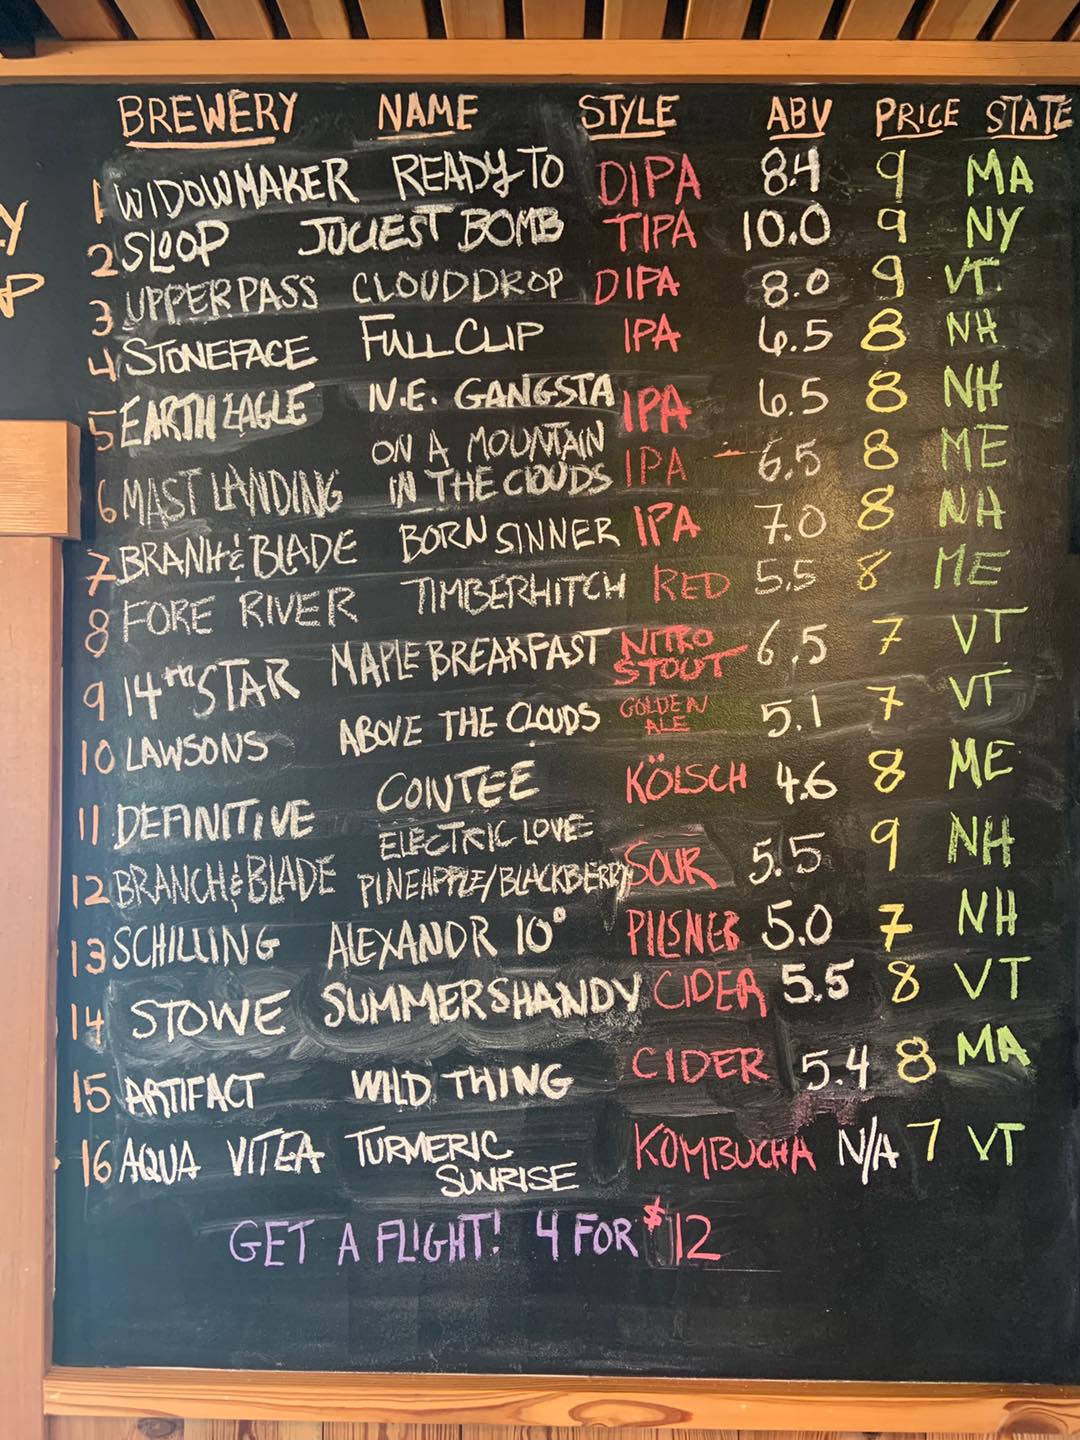 BREWERY NAME STYLE ABV PRICE STATE
1 WIDOWMAKER READY TO DIPA 8.4 9 MA
2 SLOOP JUCIEST BOMB TIPA 10.0 9 NY
3 UPPER PASS CLOUDDROP DIPA 8.0 9 VT
4 STONEFACE FULL CLIP IPA 6.5 8 NH
5 EARTH EAGLE N.E. GANGSTA IPA 6.5 8 NH
ON A MOUNTAIN
6 MAST LANDING IN THE CLOUDS IPA 6.5 8 ME
7 BRANH & BLADE BORN SINNER IPA 7.0 8 NH
8 FORE RIVER TIMBERHITCH RED 5.5 8 ME
9 14TH STAR MAPLE BREAKFAST NITRO STOUT 6.5 7 VT
10 LAWSONS ABOVE THE CLOUDS GOLDEN ALE 5.1 7 VT
11 DEFINITIVE CONTEE KÖLSCH 4.6 8 ME
ELECTRIC LOVE
12 BRANCH & BLADE PINEAPPLE/BLACKBERRY SOUR 5.5 9 NH
13 SCHILLING ALEXANDR 10° PILSNER 5.0 7 NH
14 STOWE SUMMERSHANDY CIDER 5.5 8 VT
15 ARTIFACT WILD THING CIDER 5.4 8 MA
16 AQUA VITEA TURMERIC KOMBUCHA N/A 7 VT
SUNRISE
GET A FLIGHT! 4 FOR $12